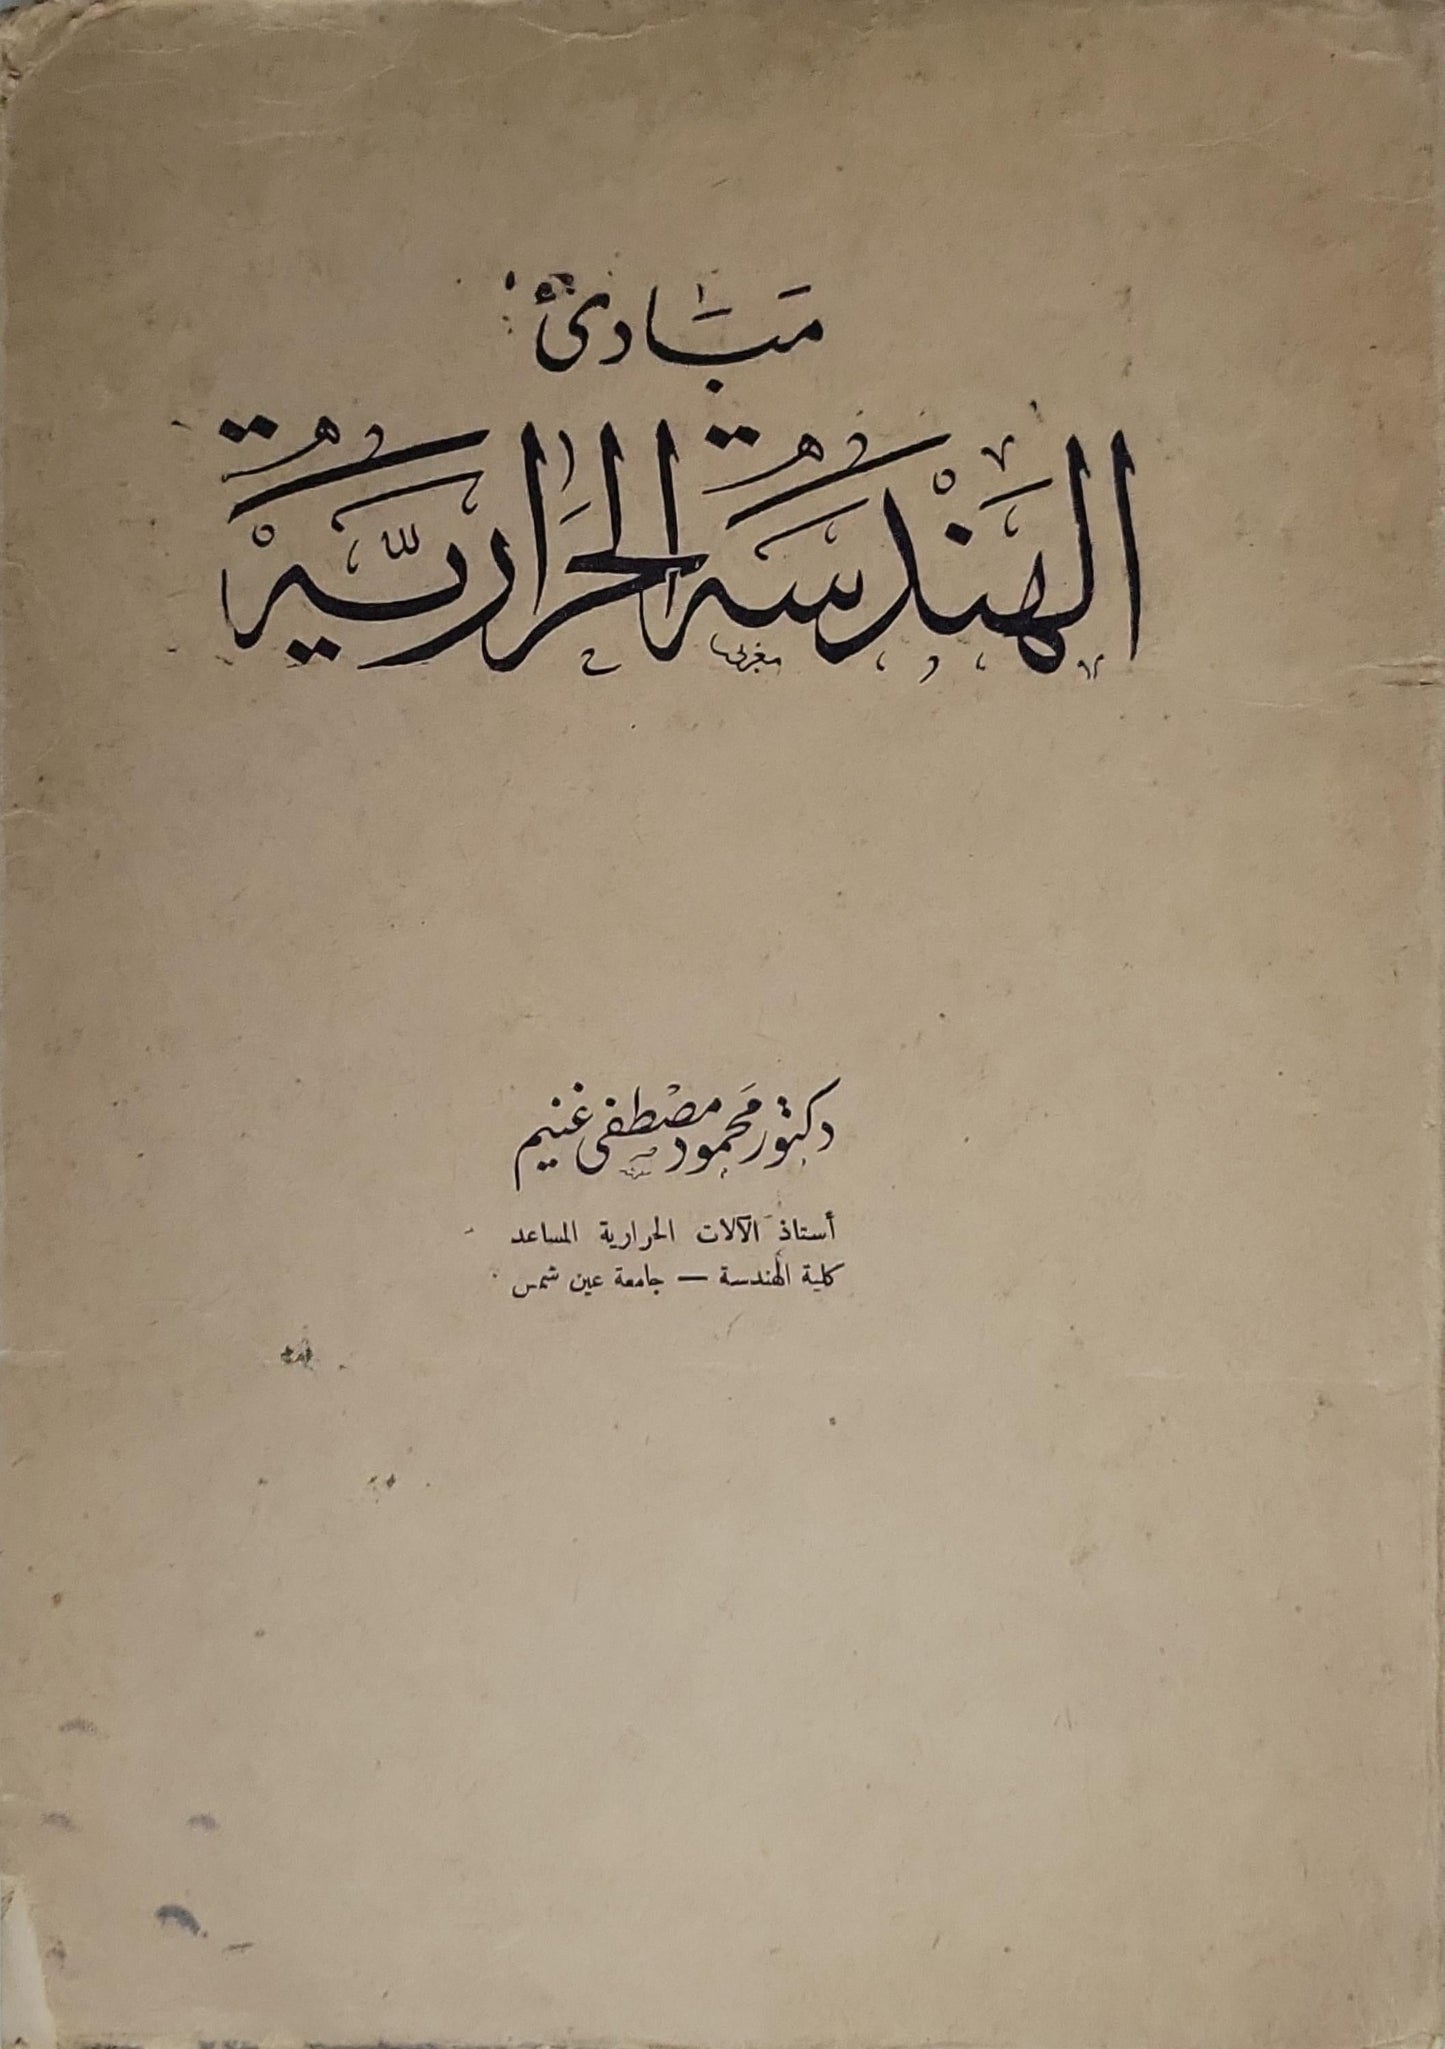 مَبَادئ
الهَنْدسَةُ الحَرَاريَّةُ
مغربى
دكتور محمود مصطفى غنيم
أستاذ الآلات الحرارية المساعد
كلية الهندسة — جامعة عين شمس